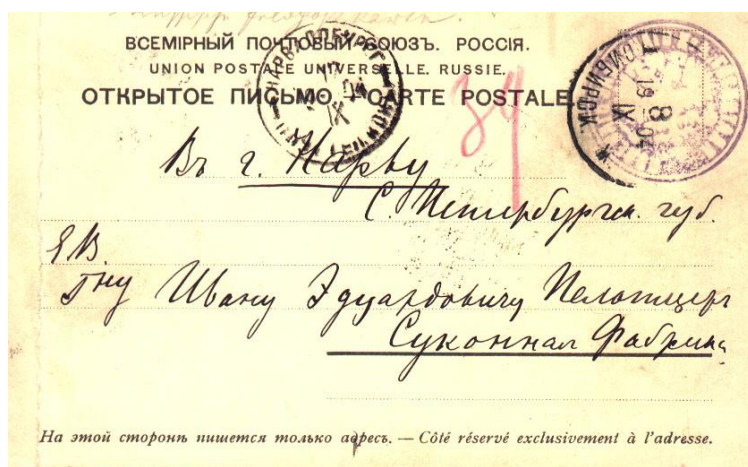 ВСЕМІРНЫЙ ПОЧТОВЫЙ СОЮЗЪ. РОССІЯ.
UNION POSTALE UNIVERSELLE. RUSSIE.
ОТКРЫТОЕ ПИСЬМО. CARTE POSTALE
34
8
IX
19 04
Въ г. Нарву
С. Петербургск. губ.
Е В.
Гну Ивану Эдуардовичу
Суконная Фабрика
На этой сторонѣ пишется только адресъ. — Côté réservé exclusivement à l'adresse.